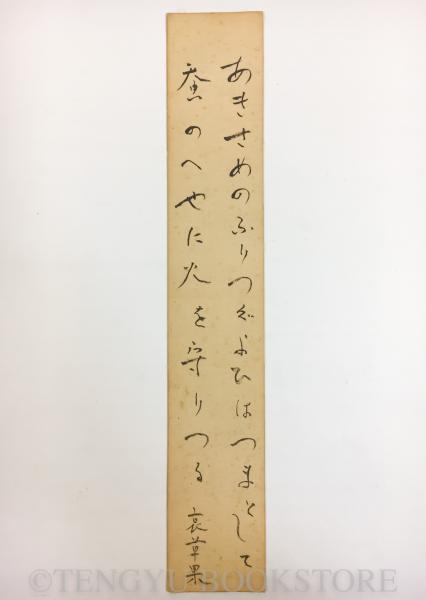 あきさめのふりつぐよひはつまとして
蚕のへやに火を守りつる
哀草果
©TENGYU BOOKSTORE